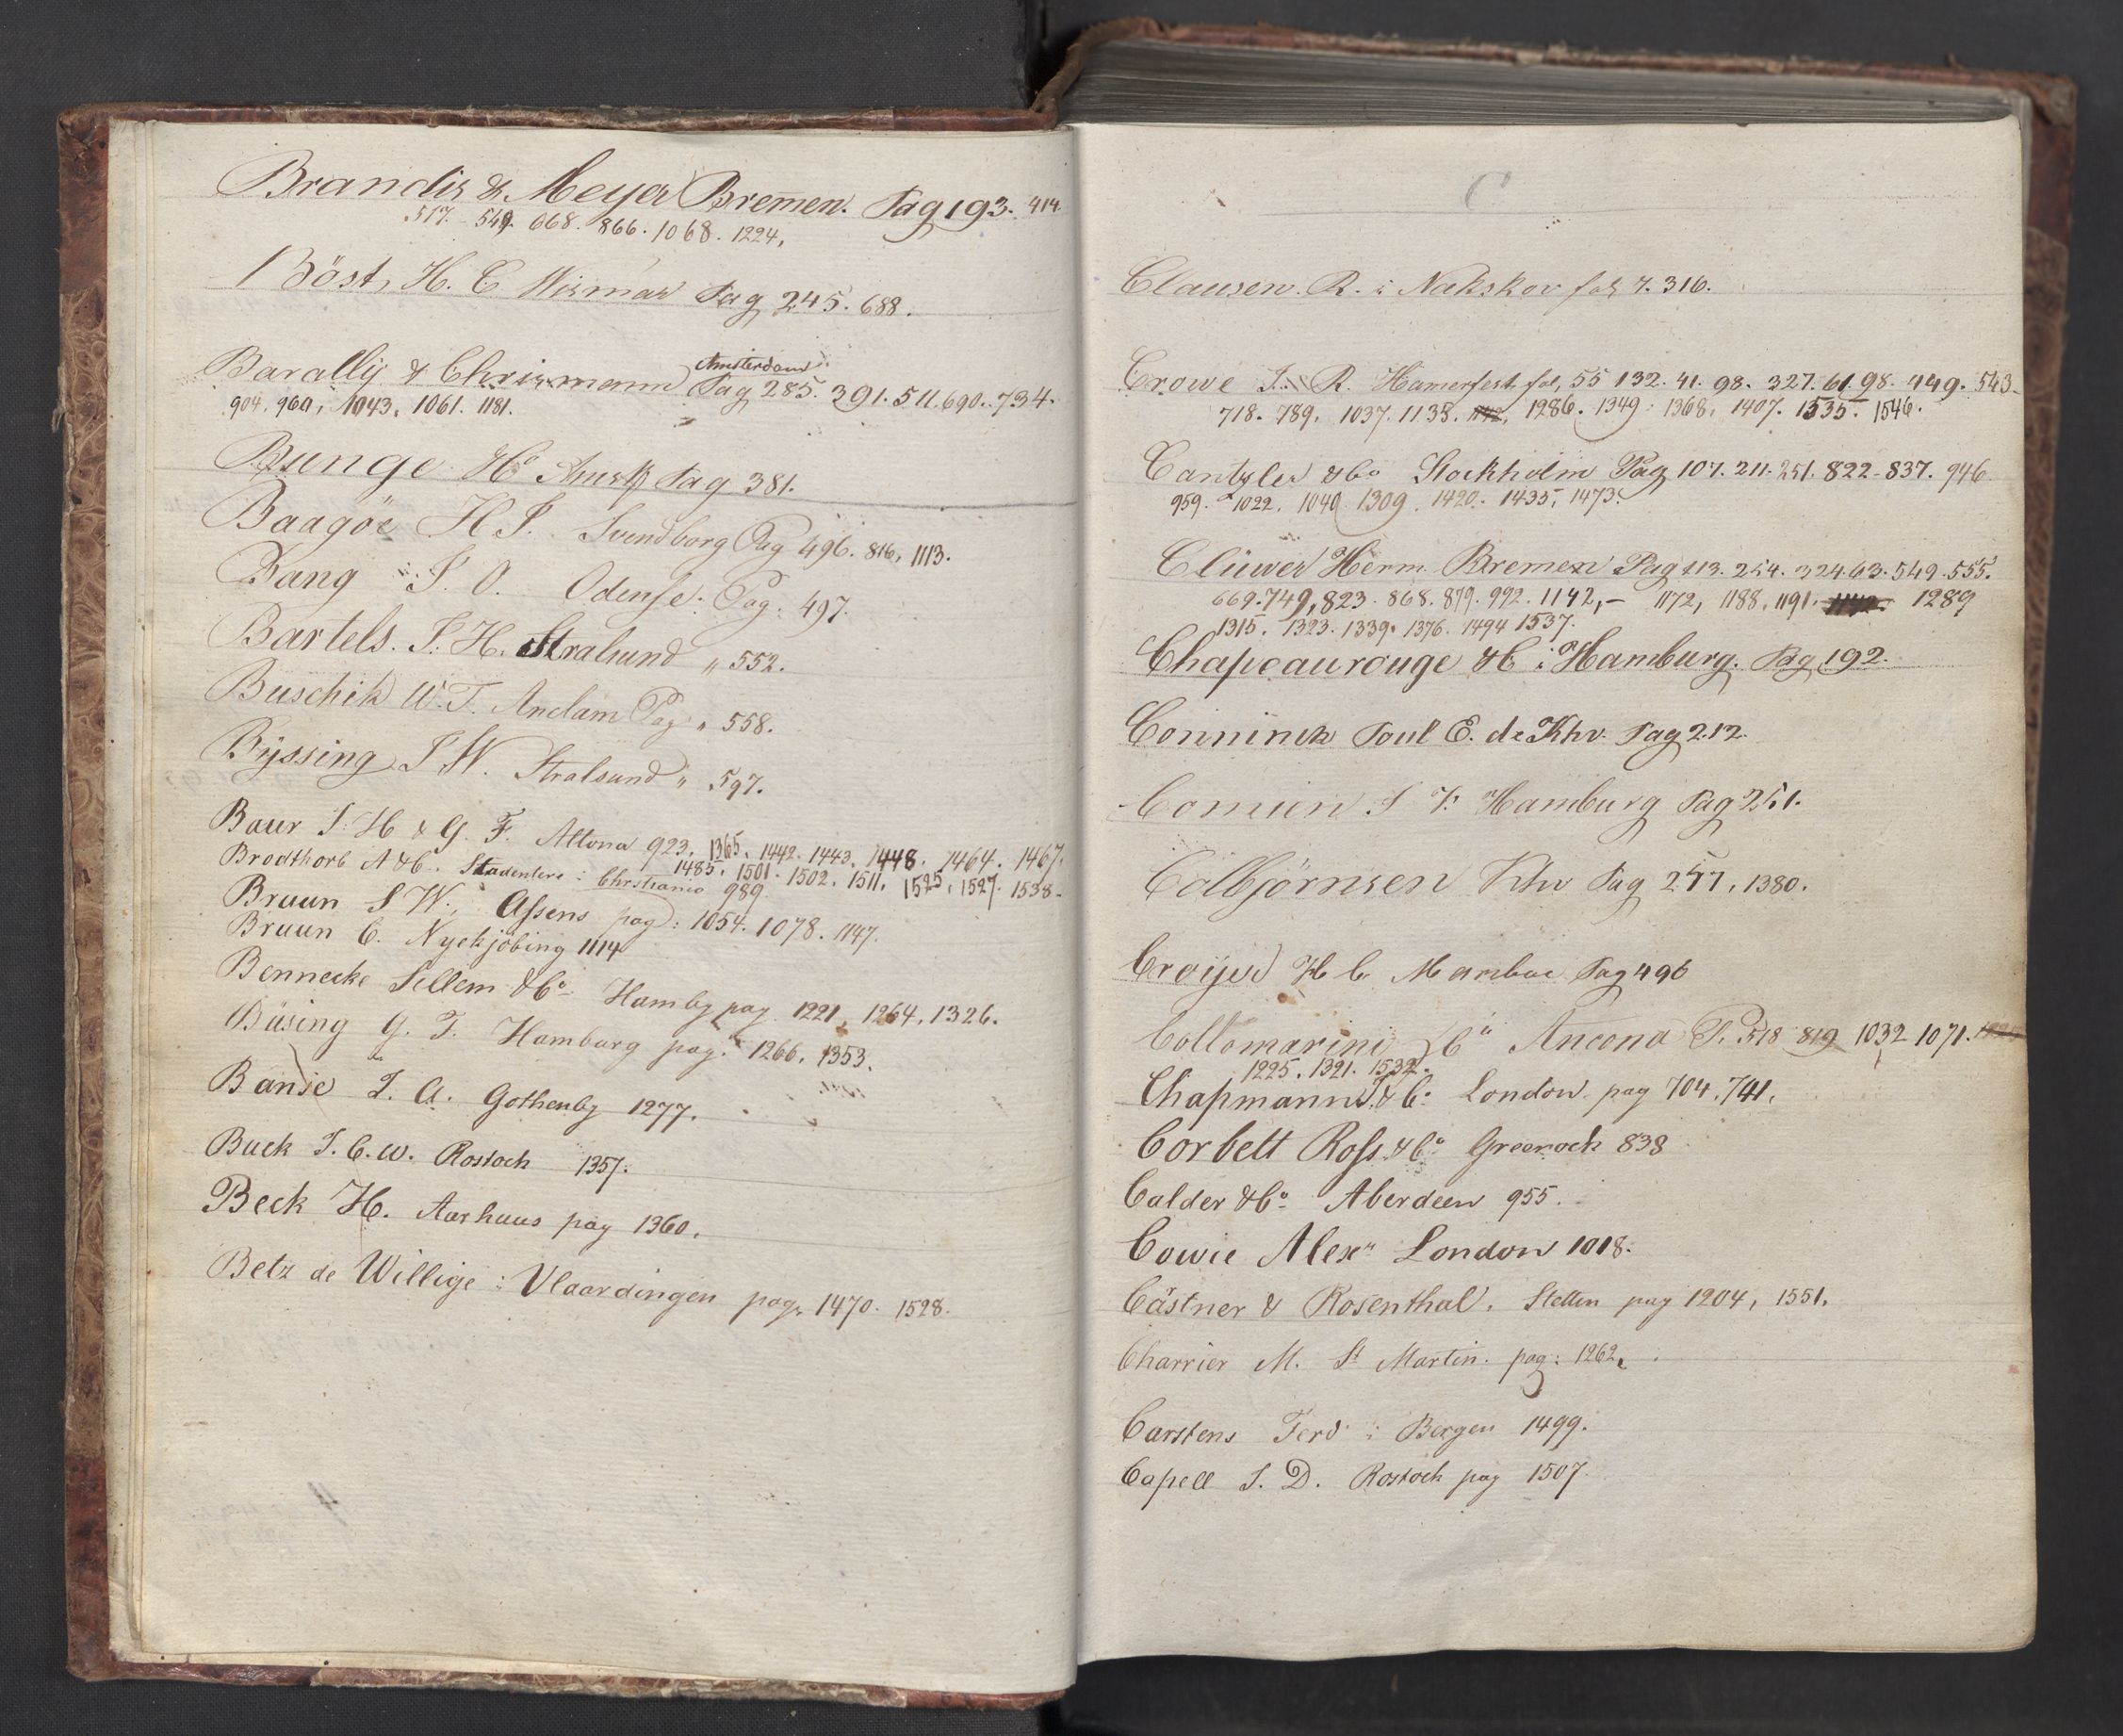 Brandis & Meyer Bremen. Pag 193. 414.
517. 549. 668. 866. 1068. 1224,
Böst, H. C Wismar Pag 245. 688.
Amsterdam
Barally & Chrismann Pag 285. 391. 511. 690. 734.
904. 960, 1043, 1061. 1181.
Bunge Pag 381.
Baagöe H J. Svendborg Pag 496. 816, 1113.
Bang J. O. Odense. Pag. 497.
Bartels. J. H. Stralsund " 552.
Buschik W. T. Anclam Pag " 558.
Byssing J W. Stralsund " 597.
Baur J. H & G. F. Altona 923. 1365. 1442. 1443. 1448. 1464. 1467.
1485. 1501. 1502. 1511. 1525, 1527. 1538.
Brodthorb A & C. Christiania 989
Bruun S W. Assens pag: 1054. 1078. 1147.
Bruun C. Nyekjöbing 1114
Bennecke Sillem & Co Hambg pag 1221, 1264, 1326.
Büsing G. F. Hamburg pag. 1266, 1353.
Banje L. A. Gothenbg 1277.
Buck J. C. W. Rostock 1357.
Beck H. Aarhuus pag 1360.
Betz de Willige i Vlaardingen pag. 1470. 1528.
C
Clausen. R. i Nakskov fol 7. 316.
Crowe J. R. Hamerfest fol, 55 132. 41. 98. 327. 61. 98. 449. 543
718. 789, 1037. 1138. 1286. 1349. 1368, 1407. 1535. 1546.
Cantzler & Co Stockholm Pag 107. 211. 251. 822. 837. 946
959. 1022. 1040 1309. 1420. 1435, 1473.
Clüver Herm Bremen Pag 113. 254. 324. 63. 549. 555.
669. 749, 823. 868. 879. 992. 1142, – 1172, 1188, 1191. 1289
1315. 1323. 1339. 1376. 1494 1537.
Chapeaurouge & C i Hamburg. Pag 192.
Coninck Poul E. de Khv. Pag 212.
Comien J F. Hamburg Pag 251.
Colbjörnsen Khv Pag 257, 1380.
Croyer H C Mariboe Pag 496
Collomarini & Co Ancona P. 518 819 1032 1071.
1225. 1321. 1532.
Chapmann & Co London. pag 704. 741.
Corbett Ross & Co Greenock 838
Calder & Co Aberdeen 955.
Cowie Alexr London 1018.
Cästner & Rosenthal. Stettin pag 1204, 1551.
Charrier M. St Martin. pag: 1262.
Carstens Ferd i Bergen 1499.
Capell J. D. Rostock pag 1507.